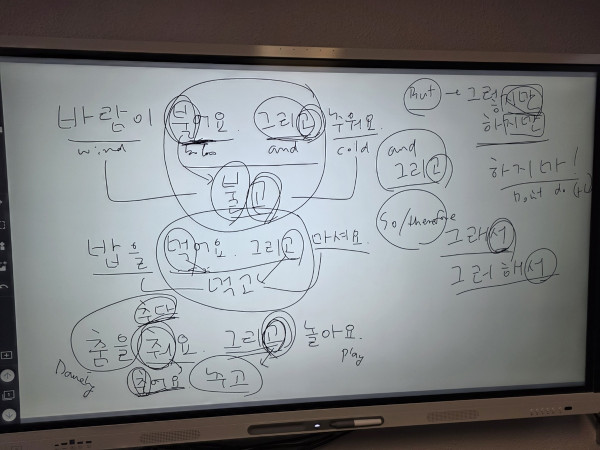 바람이 불어요. 그리고 추워요.
wind and cold
불고
밥을 먹어요. 그리고 마셔요.
먹고
추다
춤을 춰요. 그리고 놀아요.
Dancing play
추어요 추고
But → 그렇지만
하지만
and
그리고
하지마!
don't do
So/therefore
그래서
그러해서